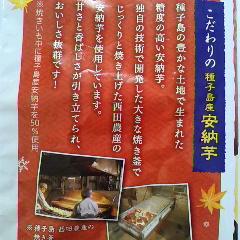 こだわりの種子島産安納芋
種子島の豊かな土地で生まれた
糖度の高い安納芋。
独自の技術で開発した大きな焼き釜で
じっくりと焼き上げた西田農産の
安納芋を使用しています。
甘さと香ばしさが引き立てられ、
おいしさ抜群です！
※焼きいも中に種子島産安納芋を50％使用
※種子島 西田農産の
焼き釜